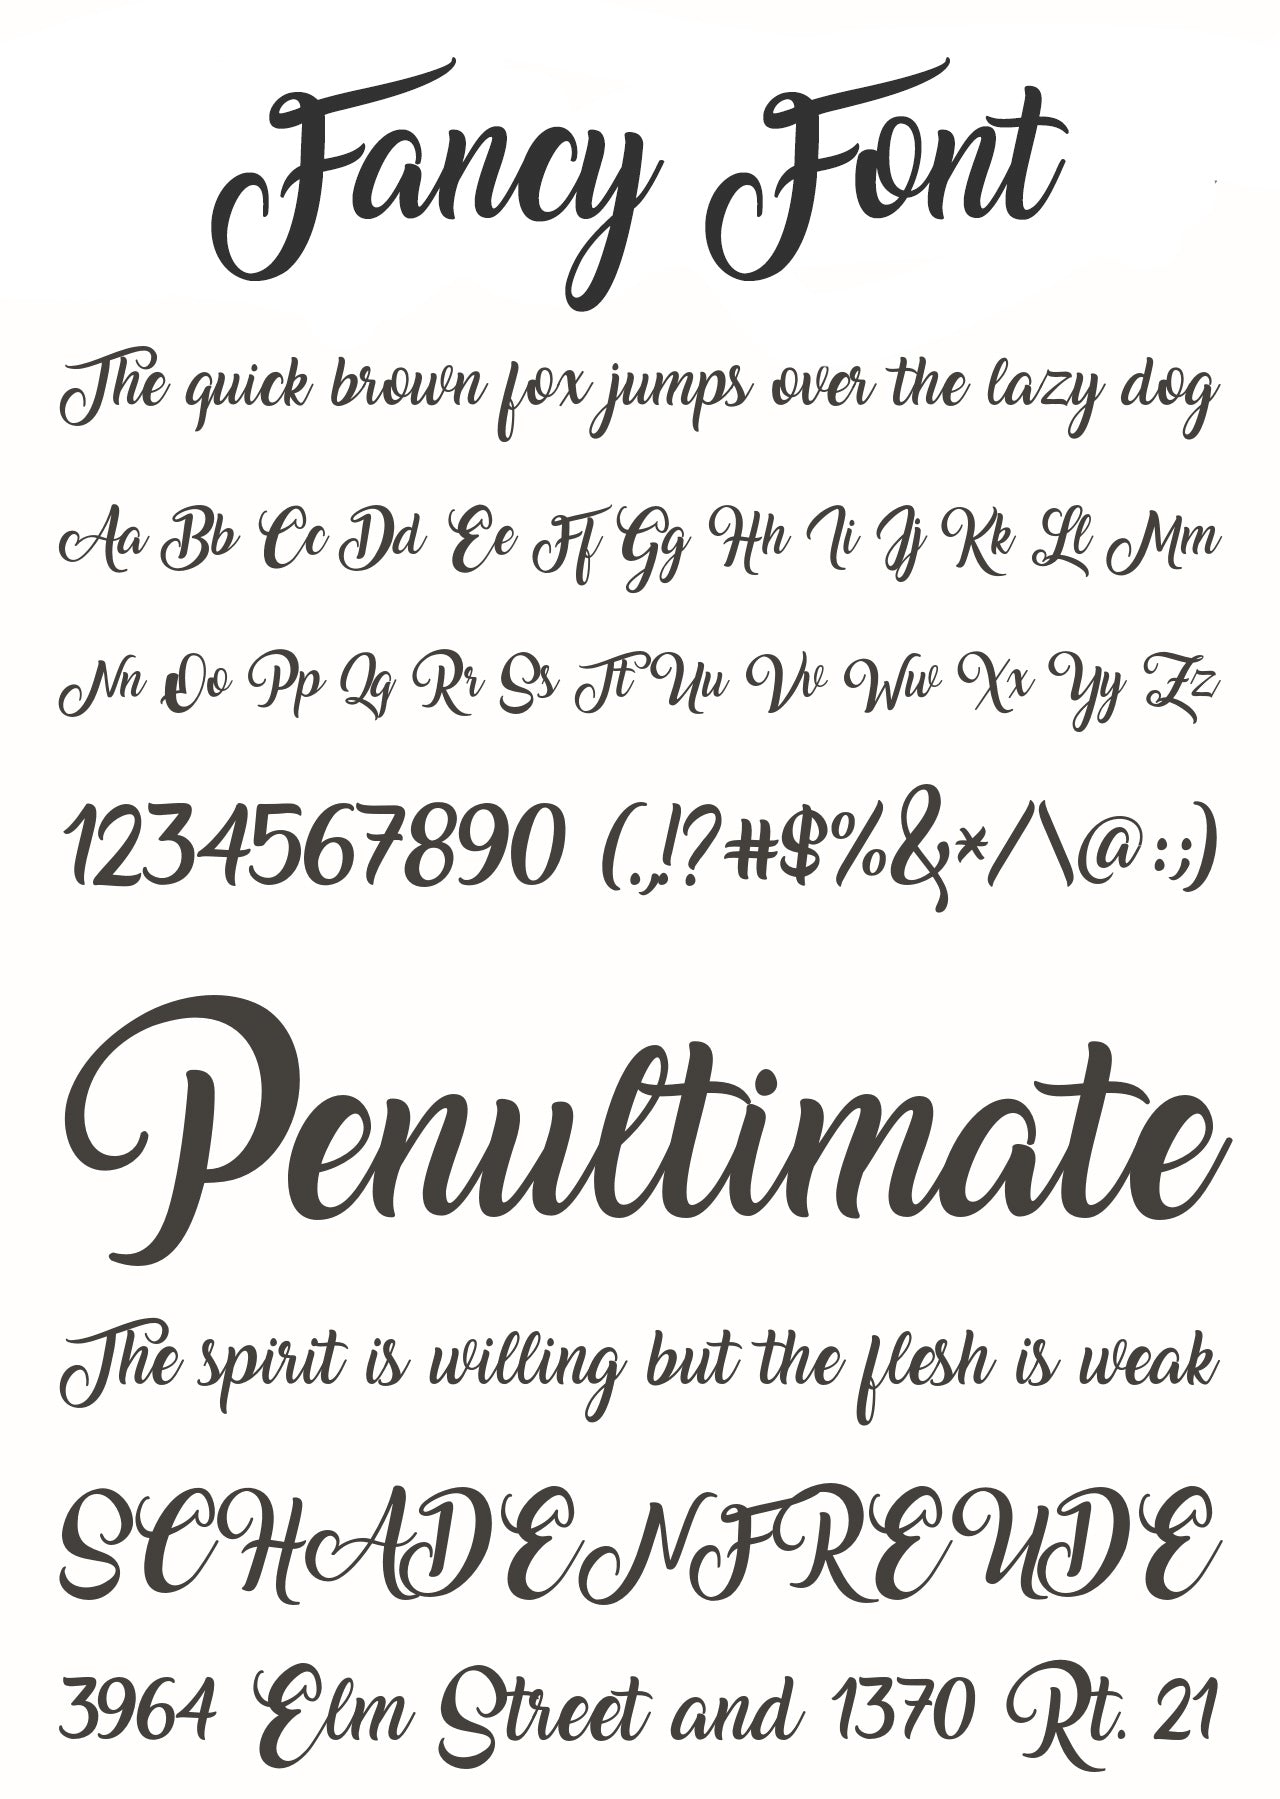 Fancy Font
The quick brown fox jumps over the lazy dog
Aa Bb Cc Dd Ee Ff Gg Hh Ii Jj Kk Ll Mm
Nn Oo Pp Qq Rr Ss Tt Uu Vv Ww Xx Yy Zz
1234567890 (.,!?#$%&*/\@:;)
Penultimate
The spirit is willing but the flesh is weak
SCHADENFREUDE
3964 Elm Street and 1370 Rt. 21